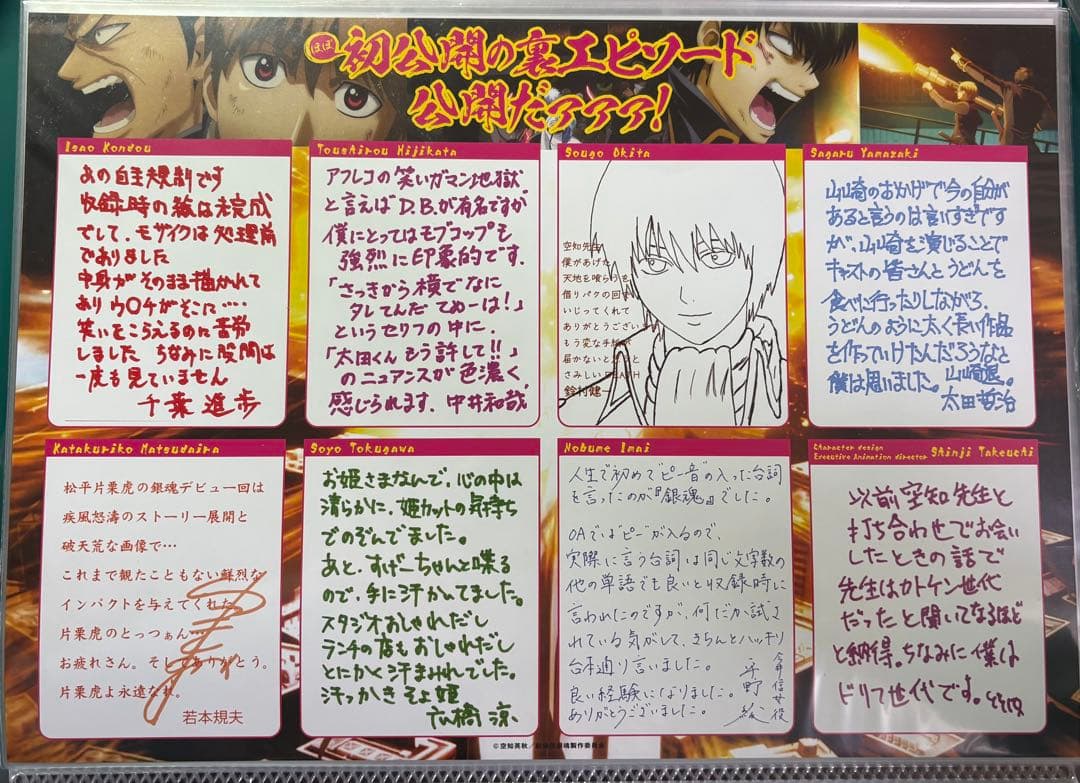 ほぼ
初公開の裏エピソード
公開だァァァ!
Isao Kondou
あの自主規制です
収録時の絵は未完成
でして、モザイクは処理前
でありました
中身がそのまま描かれて
ありウ〇チがそこに…
笑いをこらえるのに苦労
しました ちなみに股間は
一度も見ていません
千葉進歩
Toushirou Hijikata
アフレコの笑いガマン地獄
と言えばD.B.が有名ですが、
僕にとってはモブコップも
強烈に印象的です、
「さっきから横でなに
タレてんだてめーは!」
というセリフの中に、
「太田くんもう許して!!」
のニュアンスが色濃く、
感じられます、中井和哉
Sougo Okita
空知先生
僕があげた
天地を喰らうを
借りパクの回で
いじってくれて
ありがとうござい
もう変な手紙が
届かないと
さみしい
鈴村健一
Sagaru Yamazaki
山崎のおかげで今の自分が
あると言うのは言いすぎです
が、山崎を演じることで
キャストの皆さんとうどんを
食べに行ったりしながら、
うどんのように太く長い作品
を作っていけたんだろうなと
僕は思いました。山崎退。
太田哲治
Katakuriko Matsudaira
松平片栗虎の銀魂デビュー回は
疾風怒濤のストーリー展開と
破天荒な画像で…
これまで観たこともない鮮烈な
インパクトを与えてくれた
片栗虎のとっつぁん…
お疲れさん。そしてありがとう。
片栗虎よ永遠なれ。
若本規夫
Soyo Tokugawa
お姫さまなんで、心の中は
清らかに、姫カットの気持ち
でのぞんでました。
あと、すげーちゃんと喋る
ので、手に汗かいてました。
スタジオおしゃれだし
ランチの店もおしゃれだし
とにかく汗まみれでした。
汗っかきそよ姫
広橋涼
Nobume Imai
人生で初めてピー音の入った台詞
を言ったのが『銀魂』でした。
OAではピーが入るので、
実際に言う台詞は同じ文字数の
他の単語でも良いと収録時に
言われたのですが、何だか試さ
れている気がして、きちんとハッキリ
台本通り言いました。
良い経験になりました。
ありがとうございました。
今井信女役
平野綾
Character design
Executive Animation director Shinji Takeuchi
以前空知先生と
打ち合わせでお会い
したときの話で
先生はカトケン世代
だったと聞いてなるほど
と納得。ちなみに僕は
ドリフ世代です。
©空知英秋/劇場版銀魂製作委員会